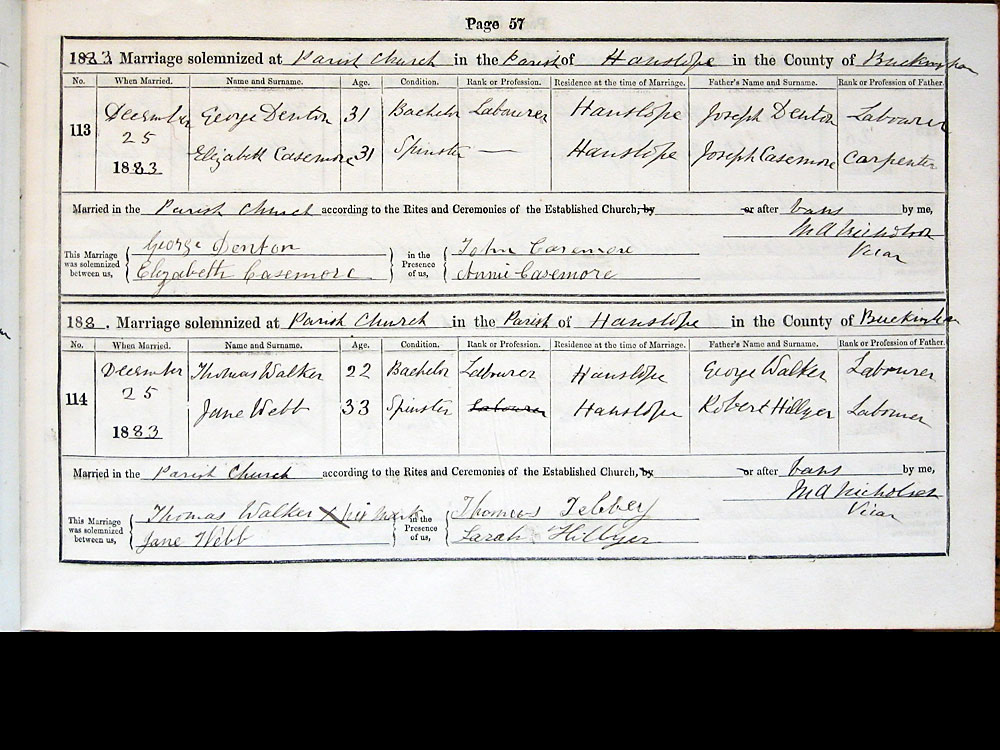 Page 57
1883. Marriage solemnized at Parish Church in the Parish of Hanslope in the County of Buckingham
No. When Married. Name and Surname. Age. Condition. Rank or Profession. Residence at the time of Marriage. Father's Name and Surname. Rank or Profession of Father.
113 December 25 1883 George Denton 31 Bachelor Labourer Hanslope Joseph Denton Labourer
Elizabeth Casemore 31 Spinster — Hanslope Joseph Casemore Carpenter
Married in the Parish Church according to the Rites and Ceremonies of the Established Church, by or after bans by me,
M A Nicholson
Vicar
This Marriage was solemnized between us, George Denton in the Presence of us, John Casemore
Elizabeth Casemore Annie Casemore
188 . Marriage solemnized at Parish Church in the Parish of Hanslope in the County of Buckingham
No. When Married. Name and Surname. Age. Condition. Rank or Profession. Residence at the time of Marriage. Father's Name and Surname. Rank or Profession of Father.
114 December 25 1883 Thomas Walker 22 Bachelor Labourer Hanslope George Walker Labourer
Jane Webb 33 Spinster Labourer Hanslope Robert Hillyer Labourer
Married in the Parish Church according to the Rites and Ceremonies of the Established Church, by or after bans by me,
M A Nicholson
Vicar
This Marriage was solemnized between us, Thomas Walker X his mark in the Presence of us, Thomas Tebbey
Jane Webb Sarah Hillyer